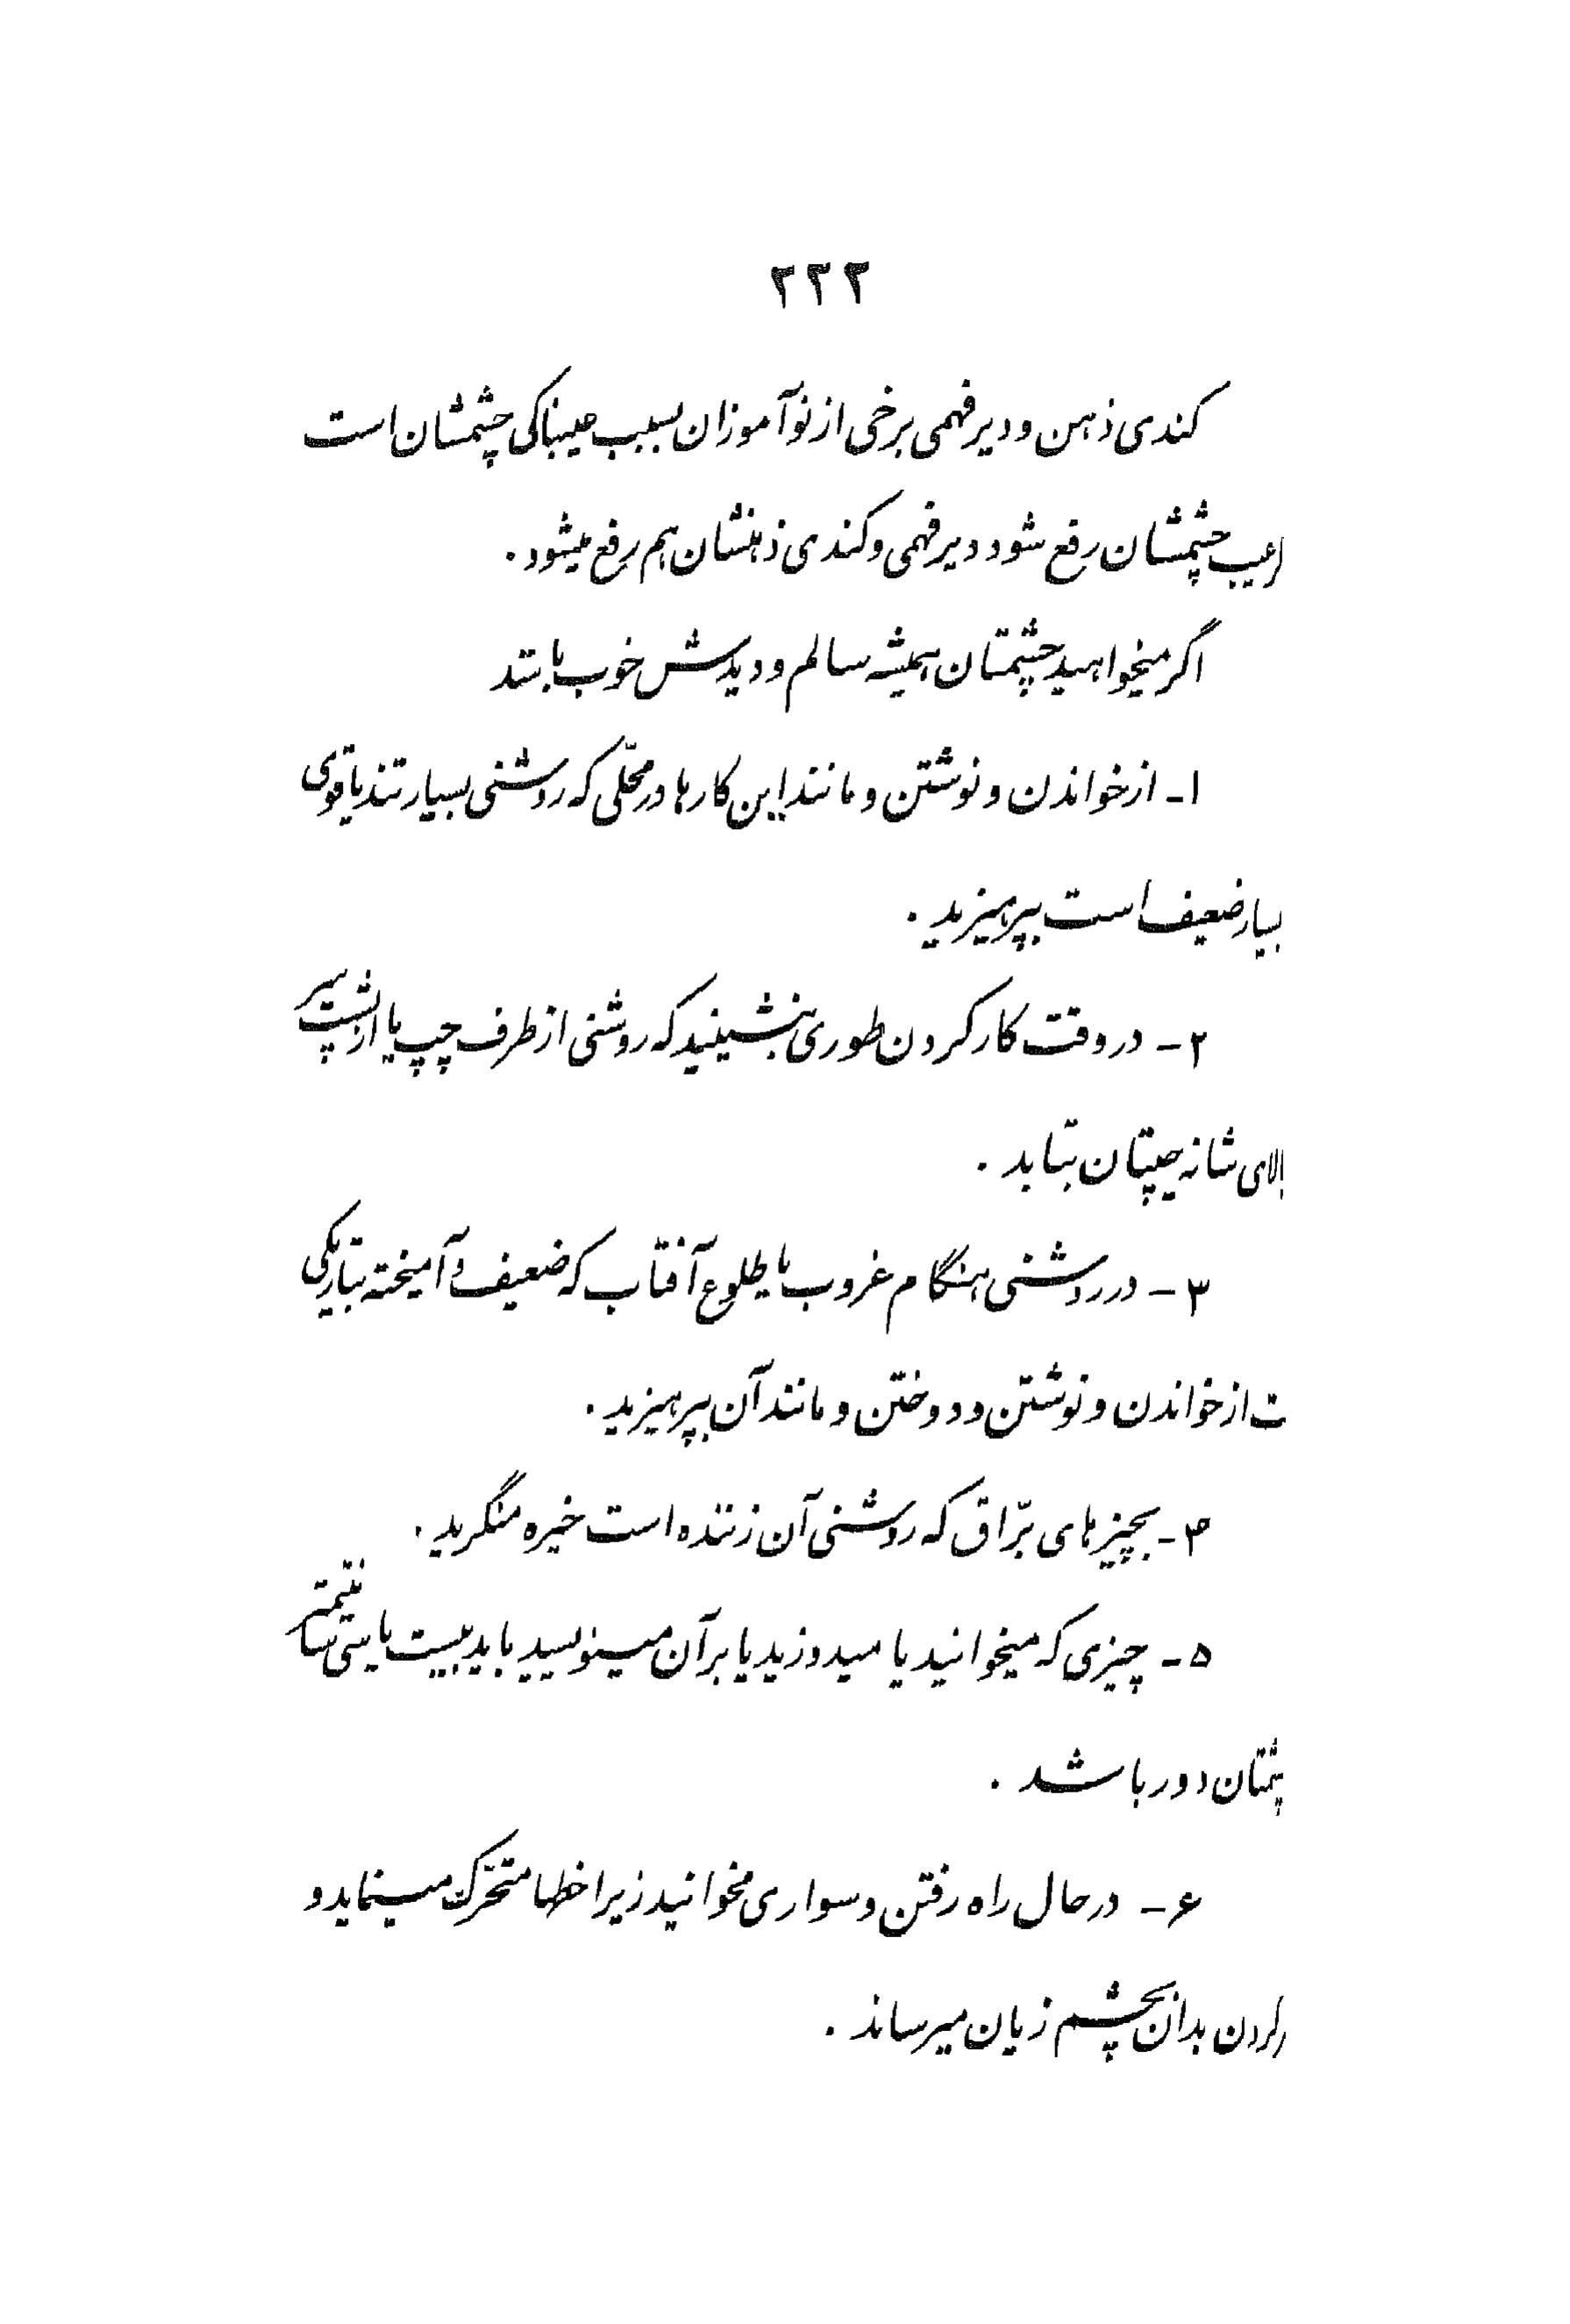 ۲۲۲
کندی ذهن و دیر فهمی برخی از نوآموزان بسبب عیبناکی چشمشان است
عیب چشمشان رفع شود دیر فهمی و کندی ذهنشان هم رفع میشود.
اگر میخواهید چشمتان همیشه سالم و دیدش خوب باشد
۱- از خواندن و نوشتن و مانند این کارها در محلّی که روشنی بسیار تند یا قوی
بسیار ضعیف است بپرهیزید.
۲- در وقت کار کردن طوری بنشینید که روشنی از طرف چپ یا از پشت سر
بالای شانه چپتان بتابد.
۳- در روشنی هنگام غروب یا طلوع آفتاب که ضعیف و آمیخته بتاریکی
ت از خواندن و نوشتن و دوختن و مانند آن بپرهیزید.
۴- بچیزهای برّاق که روشنی آن زننده است خیره منگرید.
۵- چیزی که میخوانید یا میدوزید یا بر آن مینویسید باید بیست یا سی سانتیمتر
شمتان دور باشد.
۶- در حال راه رفتن و سواری مخوانید زیرا خطها متحرّک مینماید و
کردن بدان بچشم زیان میرساند.